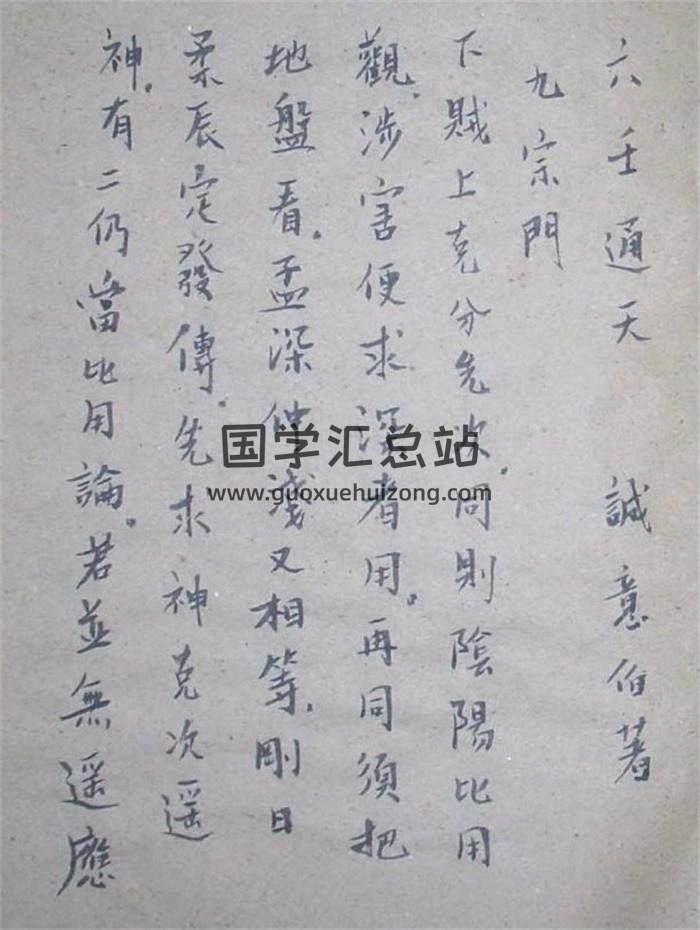 六壬通天 誠意伯著
九宗門
下賊上克分先次,同則陰陽比用
觀,涉害便求深者用。再同須把
地盤看。孟深仲淺又相等,剛日
柔辰定發傳。先求神克次遥
神。有二仍當比用論。若並無遥應
国学汇总站
www.guoxuehuizong.com